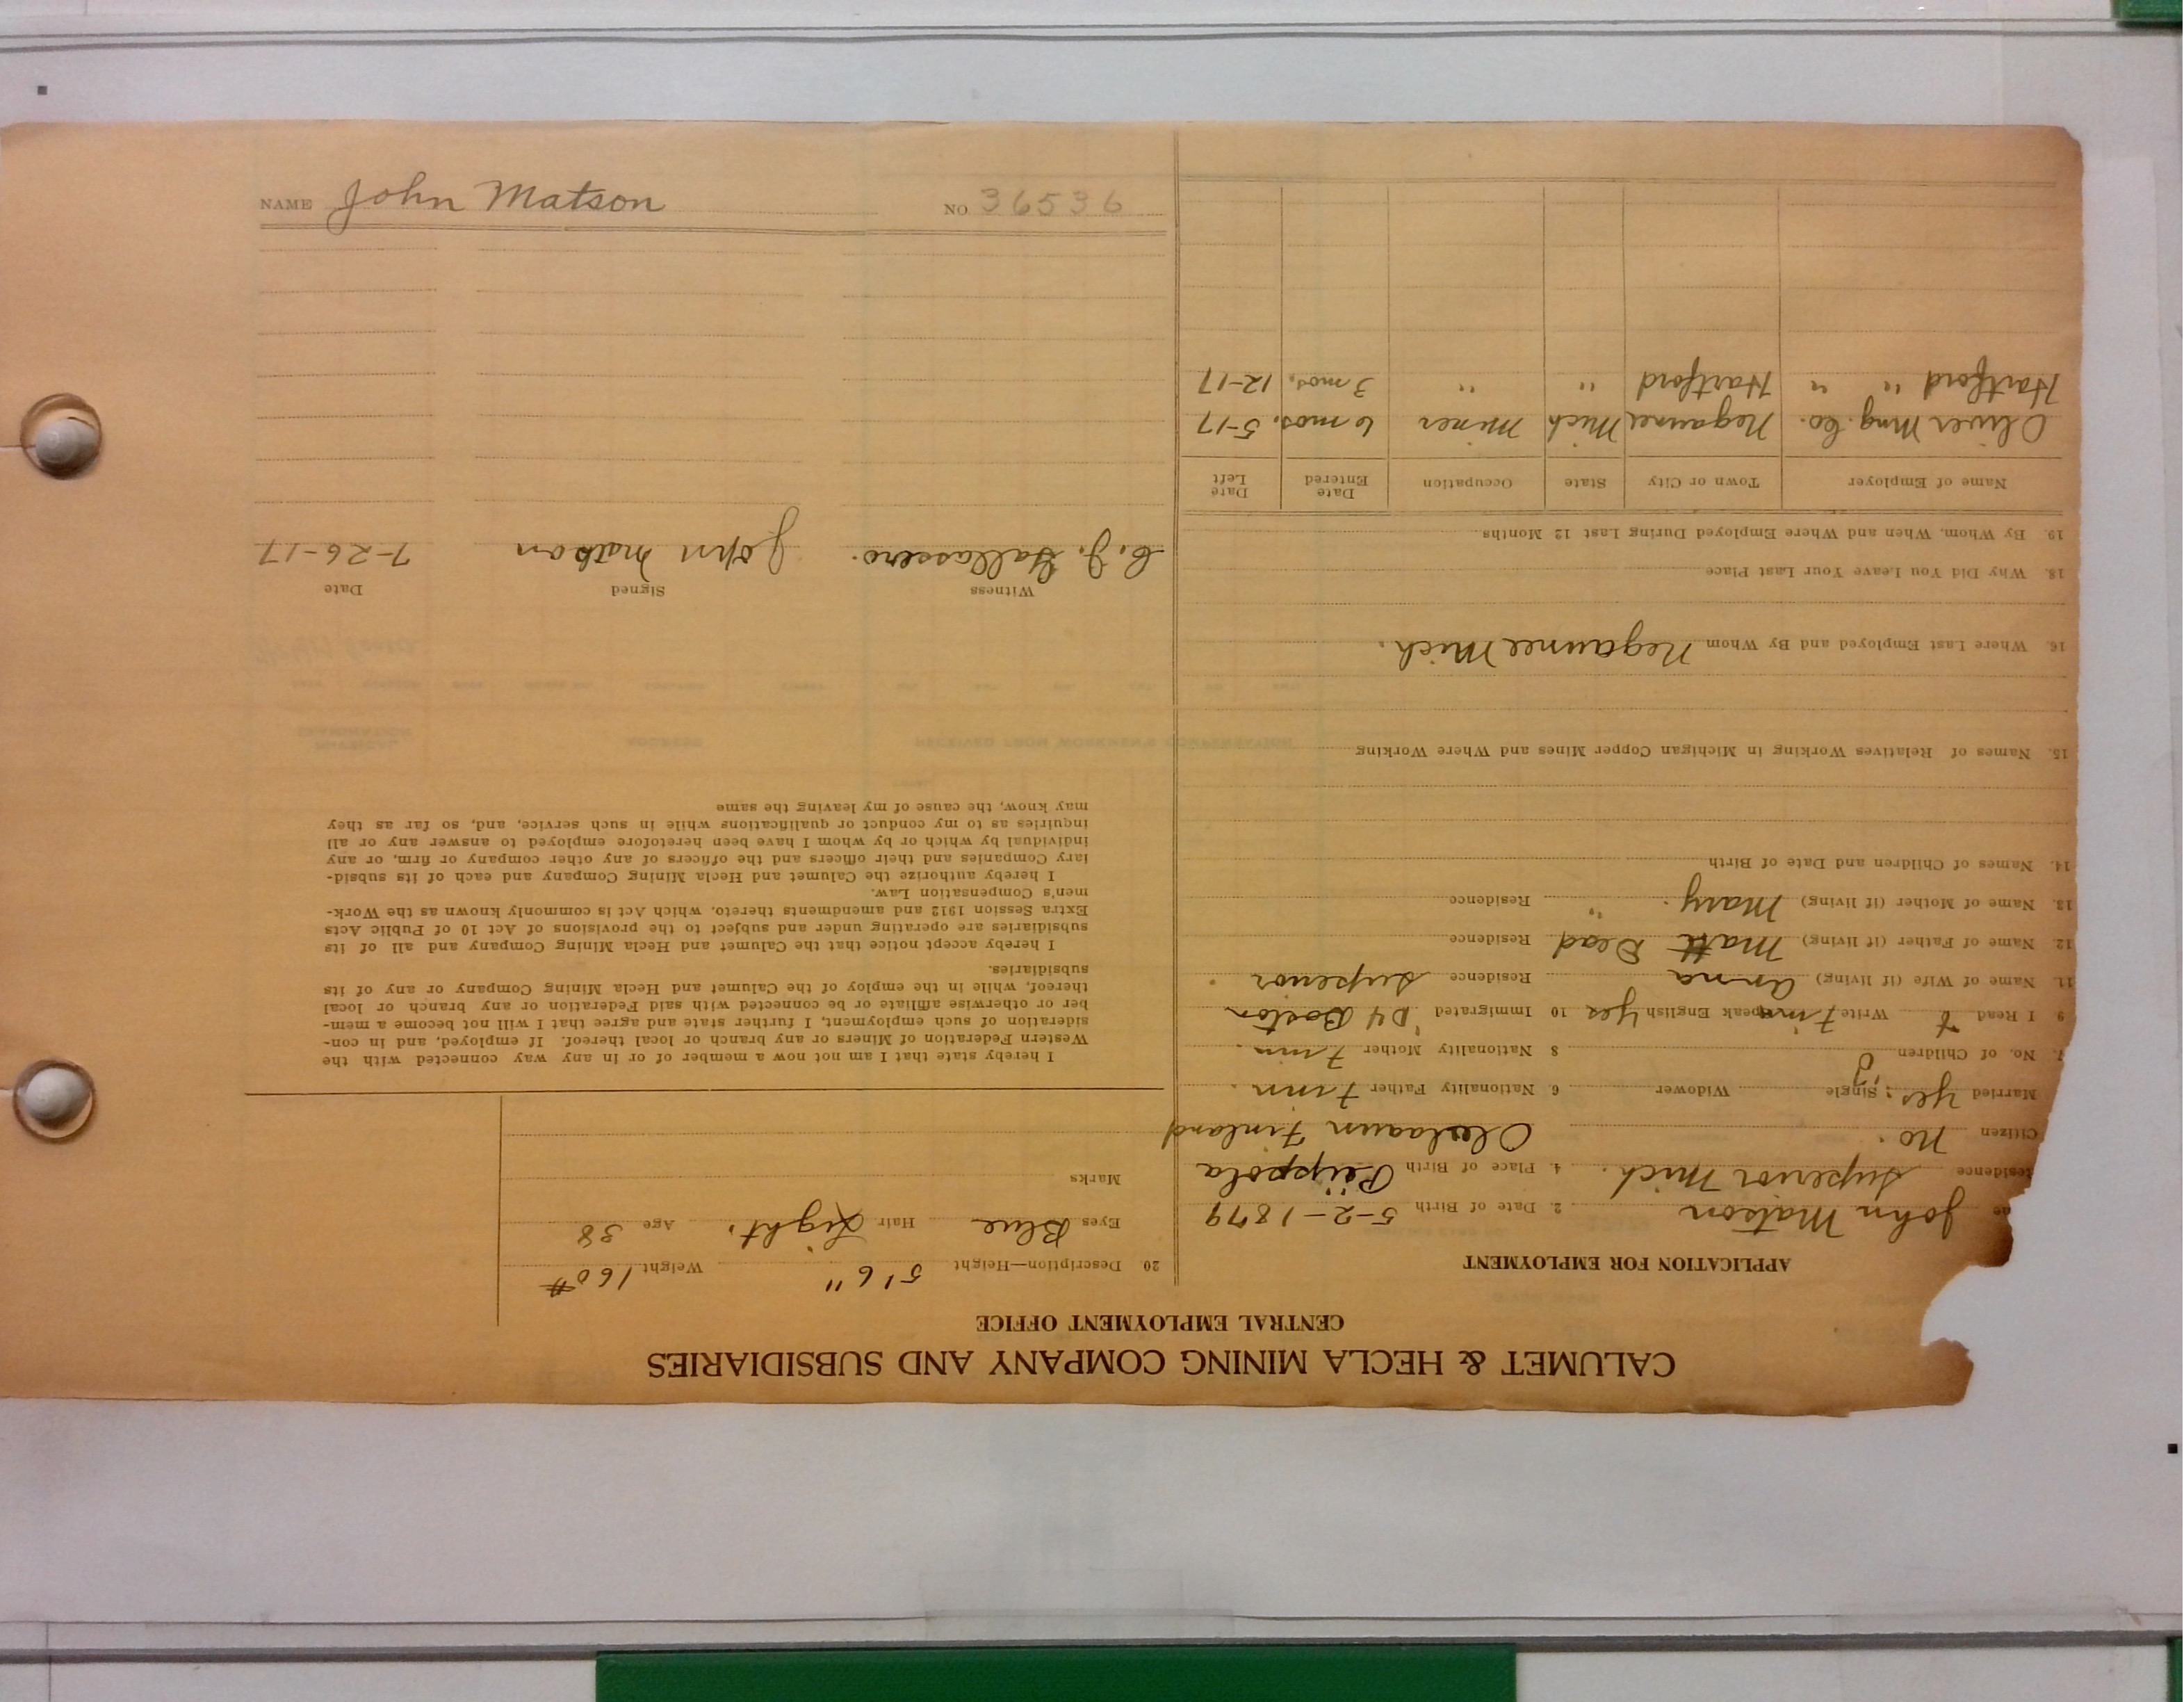 CALUMET & HECLA MINING COMPANY AND SUBSIDIARIES
CENTRAL EMPLOYMENT OFFICE
APPLICATION FOR EMPLOYMENT
John Matson 2. Date of Birth 5-2-1879
Superior Mich. 4. Place of Birth
Citizen No. Finland
Married Yes; Single Widower 6. Nationality Father Finn.
No. of Children 8 Nationality Mother Finn.
9 I Read & Write Finn Speak English Yes 10 Immigrated '04 Boston
11. Name of Wife (if living) Anna Residence Superior
12. Name of Father (if living) Matt Dead Residence
13. Name of Mother (if living) Mary. " Residence
14. Names of Children and Date of Birth
15. Names of Relatives Working in Michigan Copper Mines and Where Working
16. Where Last Employed and By Whom Negaunee Mich.
18. Why Did You Leave Your Last Place
19. By Whom, When and Where Employed During Last 12 Months
Name of Employer Town or City State Occupation Date Entered Date Left
Oliver Mng. Co. Negaunee Mich Miner 6 mos. 5-17
Hartford " " Hartford " " 3 mos. 12-17
20. Description—Height 5'6" Weight 160#
Eyes Blue Hair Light. Age 38
Marks
I hereby state that I am not now a member of or in any way connected with the
Western Federation of Miners or any branch or local thereof. If employed, and in con-
sideration of such employment, I further state and agree that I will not become a mem-
ber or otherwise affiliate or be connected with said Federation or any branch or local
thereof, while in the employ of the Calumet and Hecla Mining Company or any of its
subsidiaries.
I hereby accept notice that the Calumet and Hecla Mining Company and all of its
subsidiaries are operating under and subject to the provisions of Act 10 of Public Acts
Extra Session 1912 and amendments thereto, which Act is commonly known as the Work-
men's Compensation Law.
I hereby authorize the Calumet and Hecla Mining Company and each of its subsid-
iary Companies and their officers and the officers of any other company or firm, or any
individual by which or by whom I have been heretofore employed to answer any or all
inquiries as to my conduct or qualifications while in such service, and, so far as they
may know, the cause of my leaving the same
Witness Signed Date
C. J. John Matson 7-26-17
NAME John Matson NO 36536